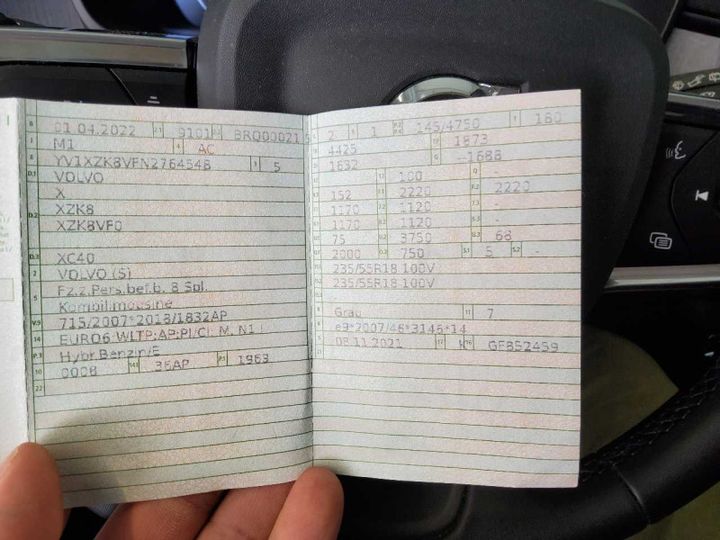 B 01.04.2022 2.1 9101 2.2 BRQ000021 5
J M1 4 AC
E YV1XZK8VFN2764548 3 5
D.1 VOLVO
X
D.2 XZK8
XZK8VF0
D.3 XC40
2 VOLVO (S)
5 Fz.z.Pers.bef.b. 8 Spl.
Kombilimousine
V.9 715/2007*2018/1832AP
14 EURO6 WLTP;AP;PI/CI; M, N1 I
P.3 Hybr.Benzin/E
10 0008 14.1 36AP P.1 1969
22
2 1 145/4750 T 180
4425 1873
1632 --1688
100 -
152 2220 2220
1170 1120 -
1170 1120 -
75 3750 68
2000 750 S.1 5 S.2 -
235/55R18 100V
235/55R18 100V
-
Grau 11 7
e9*2007/46*3146*14
08.11.2021 17 K 16 GF852459